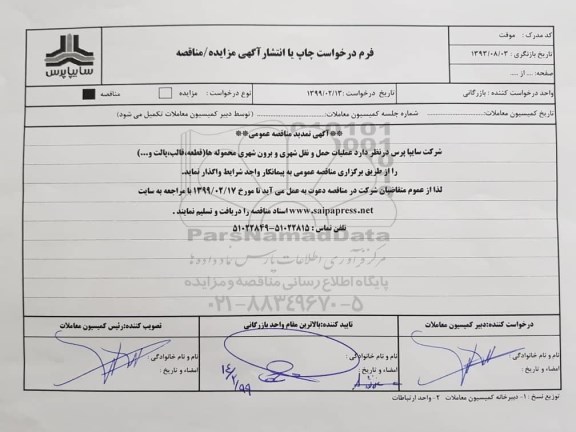 کد مدرک : موقت
تاریخ بازنگری : ۱۳۹۳/۰۸/۰۳
صفحه: ... از ...
فرم درخواست چاپ یا انتشار آگهی مزایده/مناقصه
سایپا پرس
واحد درخواست کننده : بازرگانی
تاریخ درخواست : ۱۳۹۹/۰۲/۱۳
نوع درخواست : مزایده مناقصه
تاریخ کمیسیون معاملات:........ شماره جلسه کمیسیون معاملات:........ (توسط دبیر کمیسیون معاملات تکمیل می شود)
**آگهی تمدید مناقصه عمومی**
شرکت سایپا پرس درنظر دارد عملیات حمل و نقل شهری و برون شهری محموله ها(قطعه،قالب،پالت و...)
را از طریق برگزاری مناقصه عمومی به پیمانکار واجد شرایط واگذار نماید.
لذا از عموم متقاضیان شرکت در مناقصه دعوت به عمل می آید تا مورخ ۱۳۹۹/۰۲/۱۷ با مراجعه به سایت
www.saipapress.net اسناد مناقصه را دریافت و تسلیم نمایند .
تلفن تماس : ۵۱۰۲۲۸۱۵-۵۱۰۲۲۸۴۹
ParsNamadData
مرکز فرآوری اطلاعات پارس نماد داده ها
پایگاه اطلاع رسانی مناقصه و مزایده
۰۲۱-۸۸۳۴۹۶۷۰-۵
درخواست کننده:دبیر کمیسیون معاملات
تایید کننده:بالاترین مقام واحد بازرگانی
تصویب کننده:رئیس کمیسیون معاملات
نام و نام خانوادگی :
نام و نام خانوادگی :
نام و نام خانوادگی :
امضاء و تاریخ :
امضاء و تاریخ :
امضاء و تاریخ :
۹۹/۲/۱۴
توزیع نسخ : ۱- دبیرخانه کمیسیون معاملات ۲- واحد ارتباطات